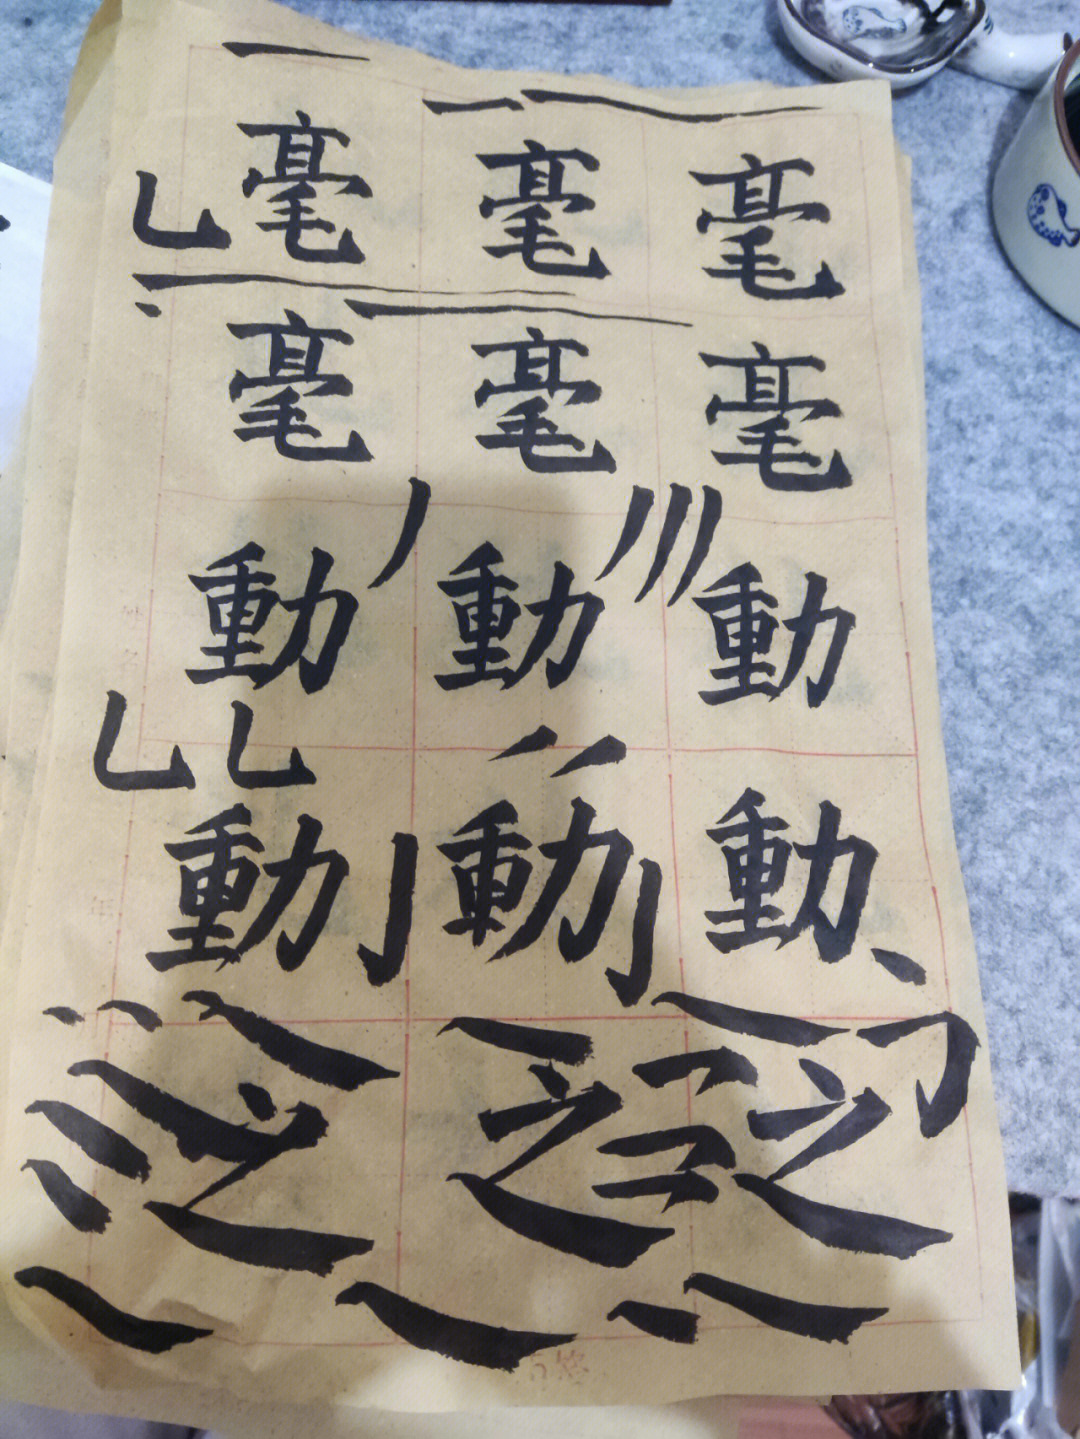 毫毫毫
毫毫毫
動動動
動動動
之之之